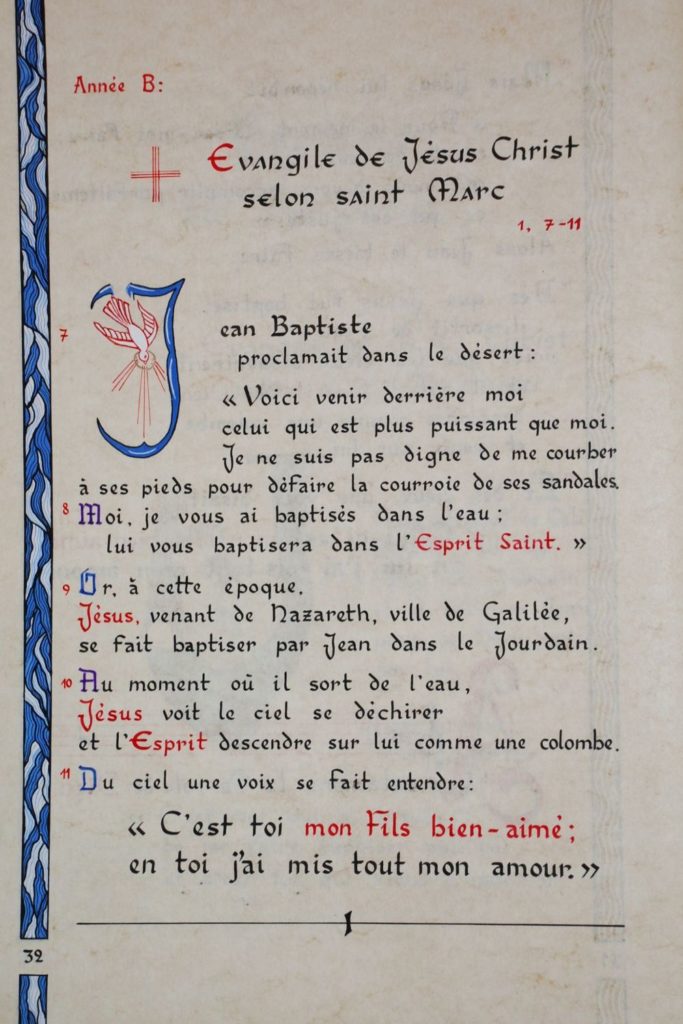 Année B:
Evangile de Jésus Christ
selon saint Marc
1, 7-11
7 Jean Baptiste
proclamait dans le désert :
« Voici venir derrière moi
celui qui est plus puissant que moi.
Je ne suis pas digne de me courber
à ses pieds pour défaire la courroie de ses sandales.
8 Moi, je vous ai baptisés dans l'eau ;
lui vous baptisera dans l'Esprit Saint. »
9 Or, à cette époque,
Jésus, venant de Nazareth, ville de Galilée,
se fait baptiser par Jean dans le Jourdain.
10 Au moment où il sort de l'eau,
Jésus voit le ciel se déchirer
et l'Esprit descendre sur lui comme une colombe.
11 Du ciel une voix se fait entendre:
« C'est toi mon Fils bien-aimé;
en toi j'ai mis tout mon amour. »
32